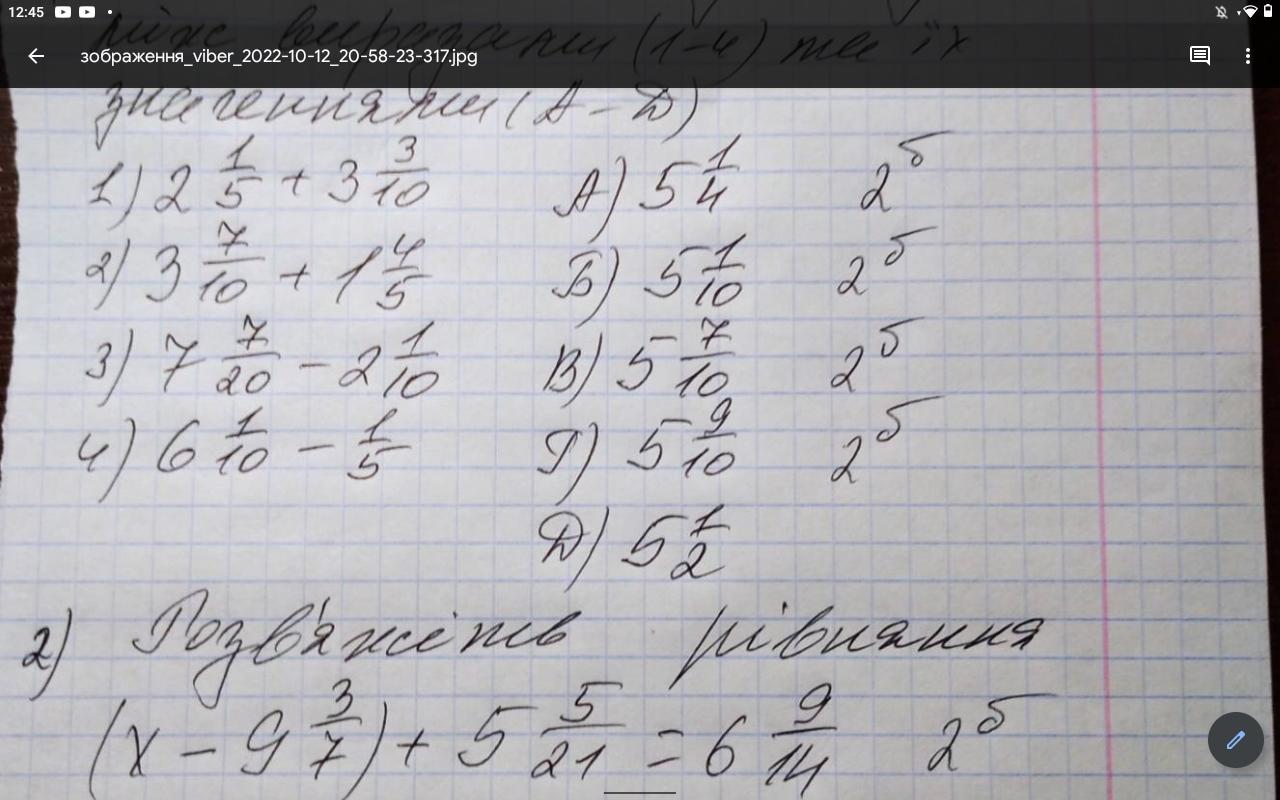 12:45
між виразами (1-4) та їх
зображення_viber_2022-10-12_20-58-23-317.jpg
значеннями (А - Д)
1) 2 1/5 + 3 3/10 А) 5 1/4 2б
2) 3 7/10 + 1 4/5 Б) 5 1/10 2б
3) 7 7/20 - 2 1/10 В) 5 7/10 2б
4) 6 1/10 - 1/5 Г) 5 9/10 2б
Д) 5 1/2
2) Розв'яжіть рівняння
(x - 9 3/7) + 5 5/21 = 6 9/14 2б